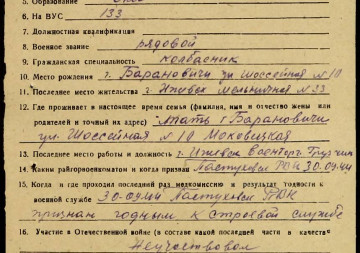 5. Образование
6. На ВУС 133
7. Должностная квалификация
8. Военное звание рядовой
9. Гражданская специальность колбасник
10. Место рождения г. Барановичи ул Шоссейная N 10
11. Последнее место жительства г. Ижевск
12. Где проживает в настоящее время семья (фамилия, имя и отчество жены или
родителей и точный их адрес) мать г Барановичи
ул. Шоссейная N 10
13. Последнее место работы и должность г. Ижевск Военторг Грузчик
14. Каким райгорвоенкоматом и когда призван РВК 30-09-44
15. Когда и где проходил последний раз медкомиссию и результат годности к
военной службе 30-09-44 РВК
признан годным к строевой службе
16. Участие в Отечественной войне (в составе какой последней части и в качестве
Неучаствовал